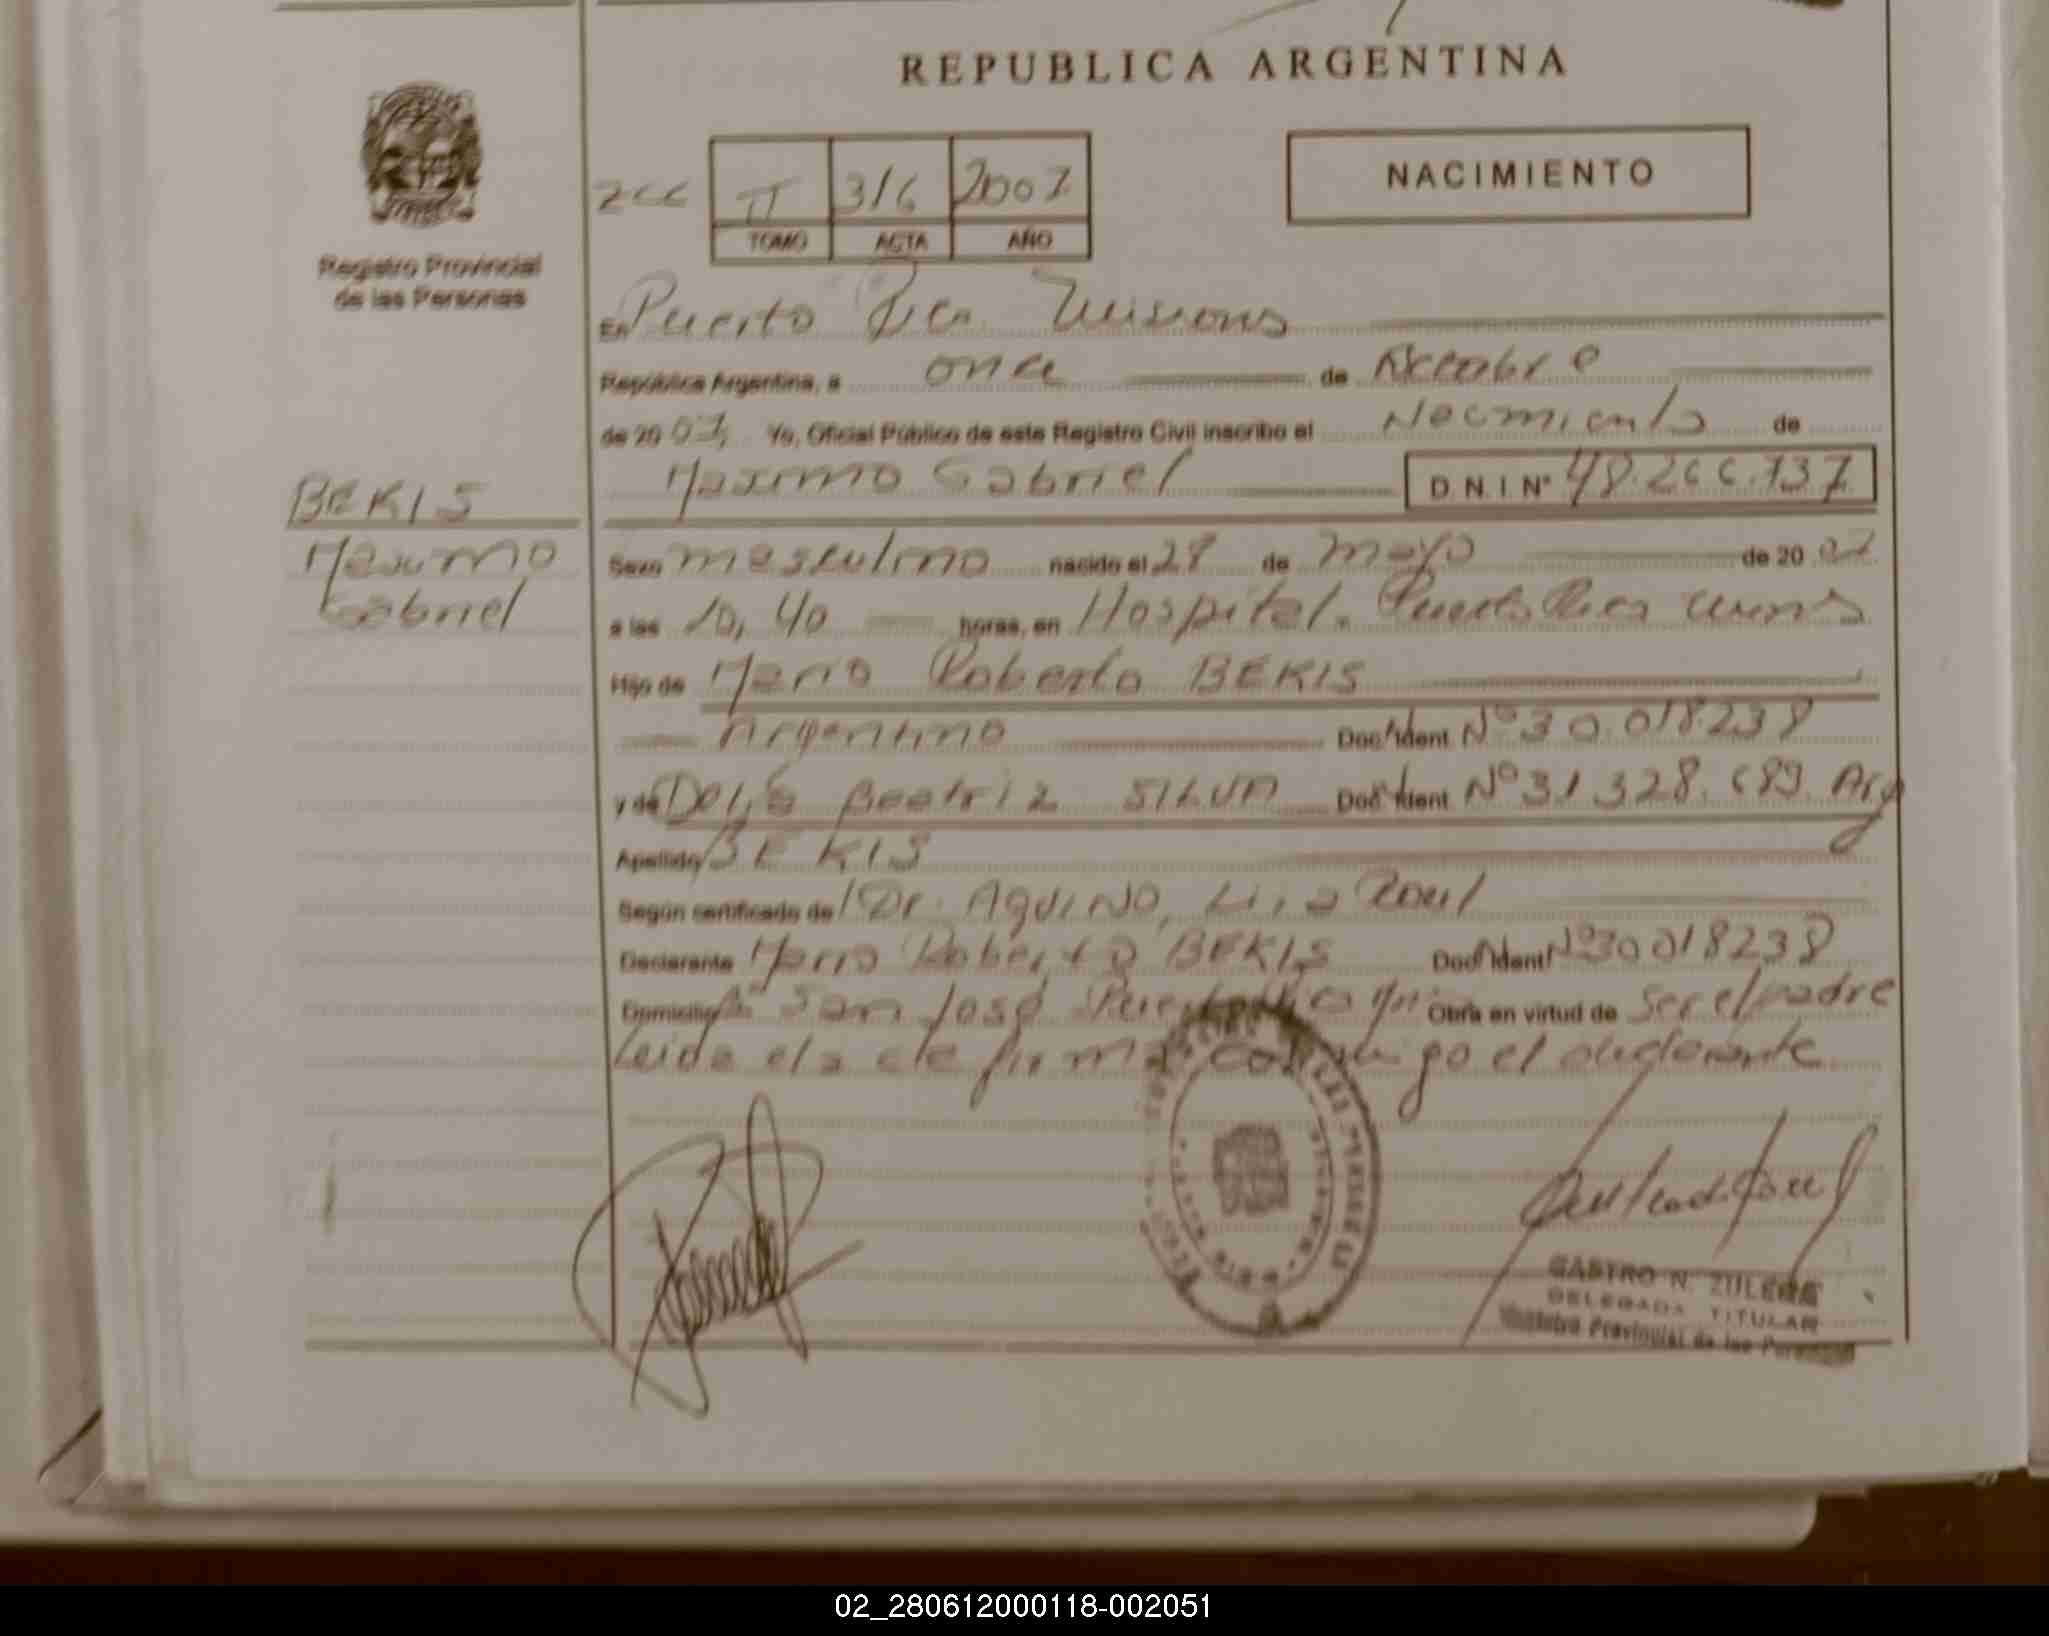 REPUBLICA ARGENTINA
NACIMIENTO
Registro Provincial
de las Personas
266 II 316 2007
TOMO ACTA AÑO
En Puerto Rico Misiones
República Argentina, a once de Octubre
de 2007, Yo, Oficial Público de este Registro Civil inscribo el Nacimiento de
Maximo Gabriel D N. I N° 48.266.737
BEKIS
Maximo
Gabriel
Sexo masculino nacido el 28 de mayo de 20 07
a las 10,40 horas, en Hospital. Puerto Rico
Hijo de Mario Roberto BEKIS
Argentino Doc. Ident N° 30.018.238
y de Delia Beatriz SILVA Doc. Ident N° 31.328.689. Arg
Apellido BEKIS
Según certificado de Dr. AQUINO, Raul
Declarante Mario Roberto BEKIS Doc. Ident N° 30018238
Domicilio San José Puerto Rico Obra en virtud de ser el padre
Leida el acta firma conmigo el declarante
CASTRO N. ZULEMA
DELEGADA TITULAR
Registro Provincial de las Personas
02_280612000118-002051